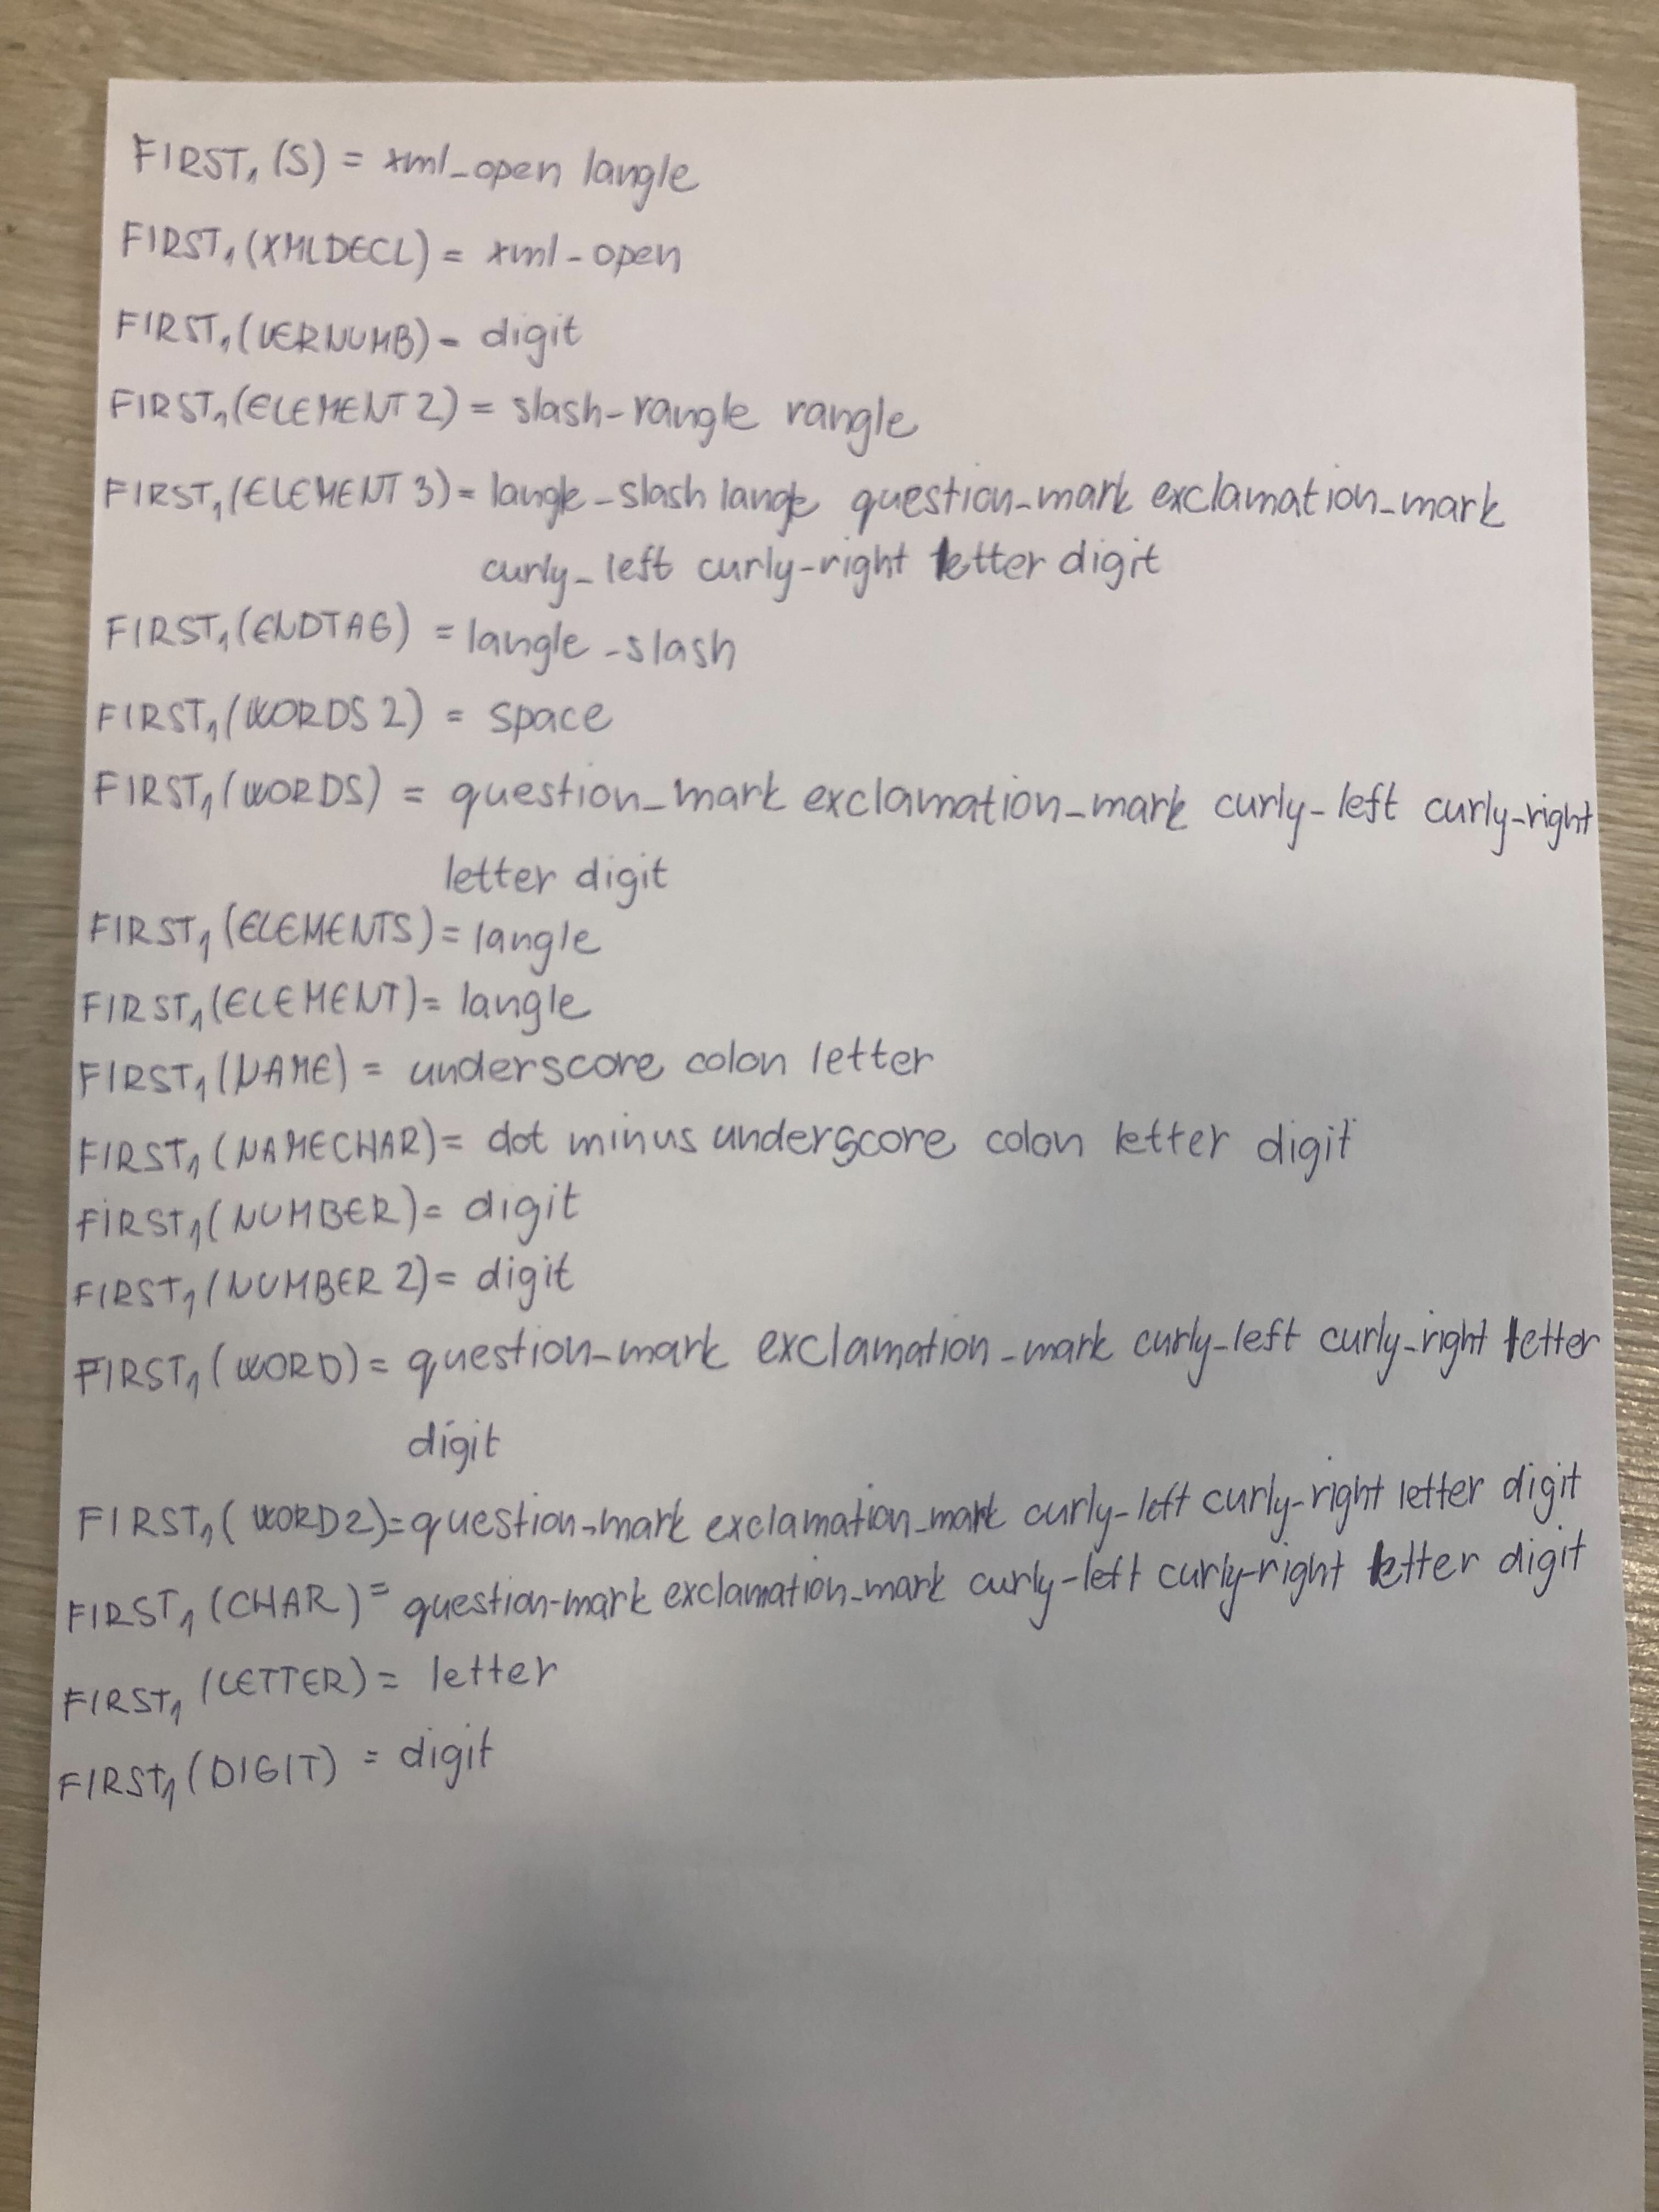 FIRST₁(S) = xml_open langle
FIRST₁(XMLDECL) = xml-open
FIRST₁(VERNUMB) - digit
FIRST₁(ELEMENT 2) = slash-rangle rangle
FIRST₁(ELEMENT 3) = langle_slash langle question_mark exclamation_mark
curly_left curly-right letter digit
FIRST₁(ENDTAG) = langle_slash
FIRST₁(WORDS 2) = space
FIRST₁(WORDS) = question_mark exclamation_mark curly-left curly-right
letter digit
FIRST₁(ELEMENTS) = langle
FIRST₁(ELEMENT) = langle
FIRST₁(NAME) = underscore colon letter
FIRST₁(NAMECHAR) = dot minus underscore colon letter digit
FIRST₁(NUMBER) = digit
FIRST₁(NUMBER 2) = digit
FIRST₁(WORD) = question_mark exclamation_mark curly_left curly_right letter
digit
FIRST₁(WORD2) = question-mark exclamation_mark curly-left curly-right letter digit
FIRST₁(CHAR) = question-mark exclamation_mark curly-left curly-right letter digit
FIRST₁(LETTER) = letter
FIRST₁(DIGIT) = digit